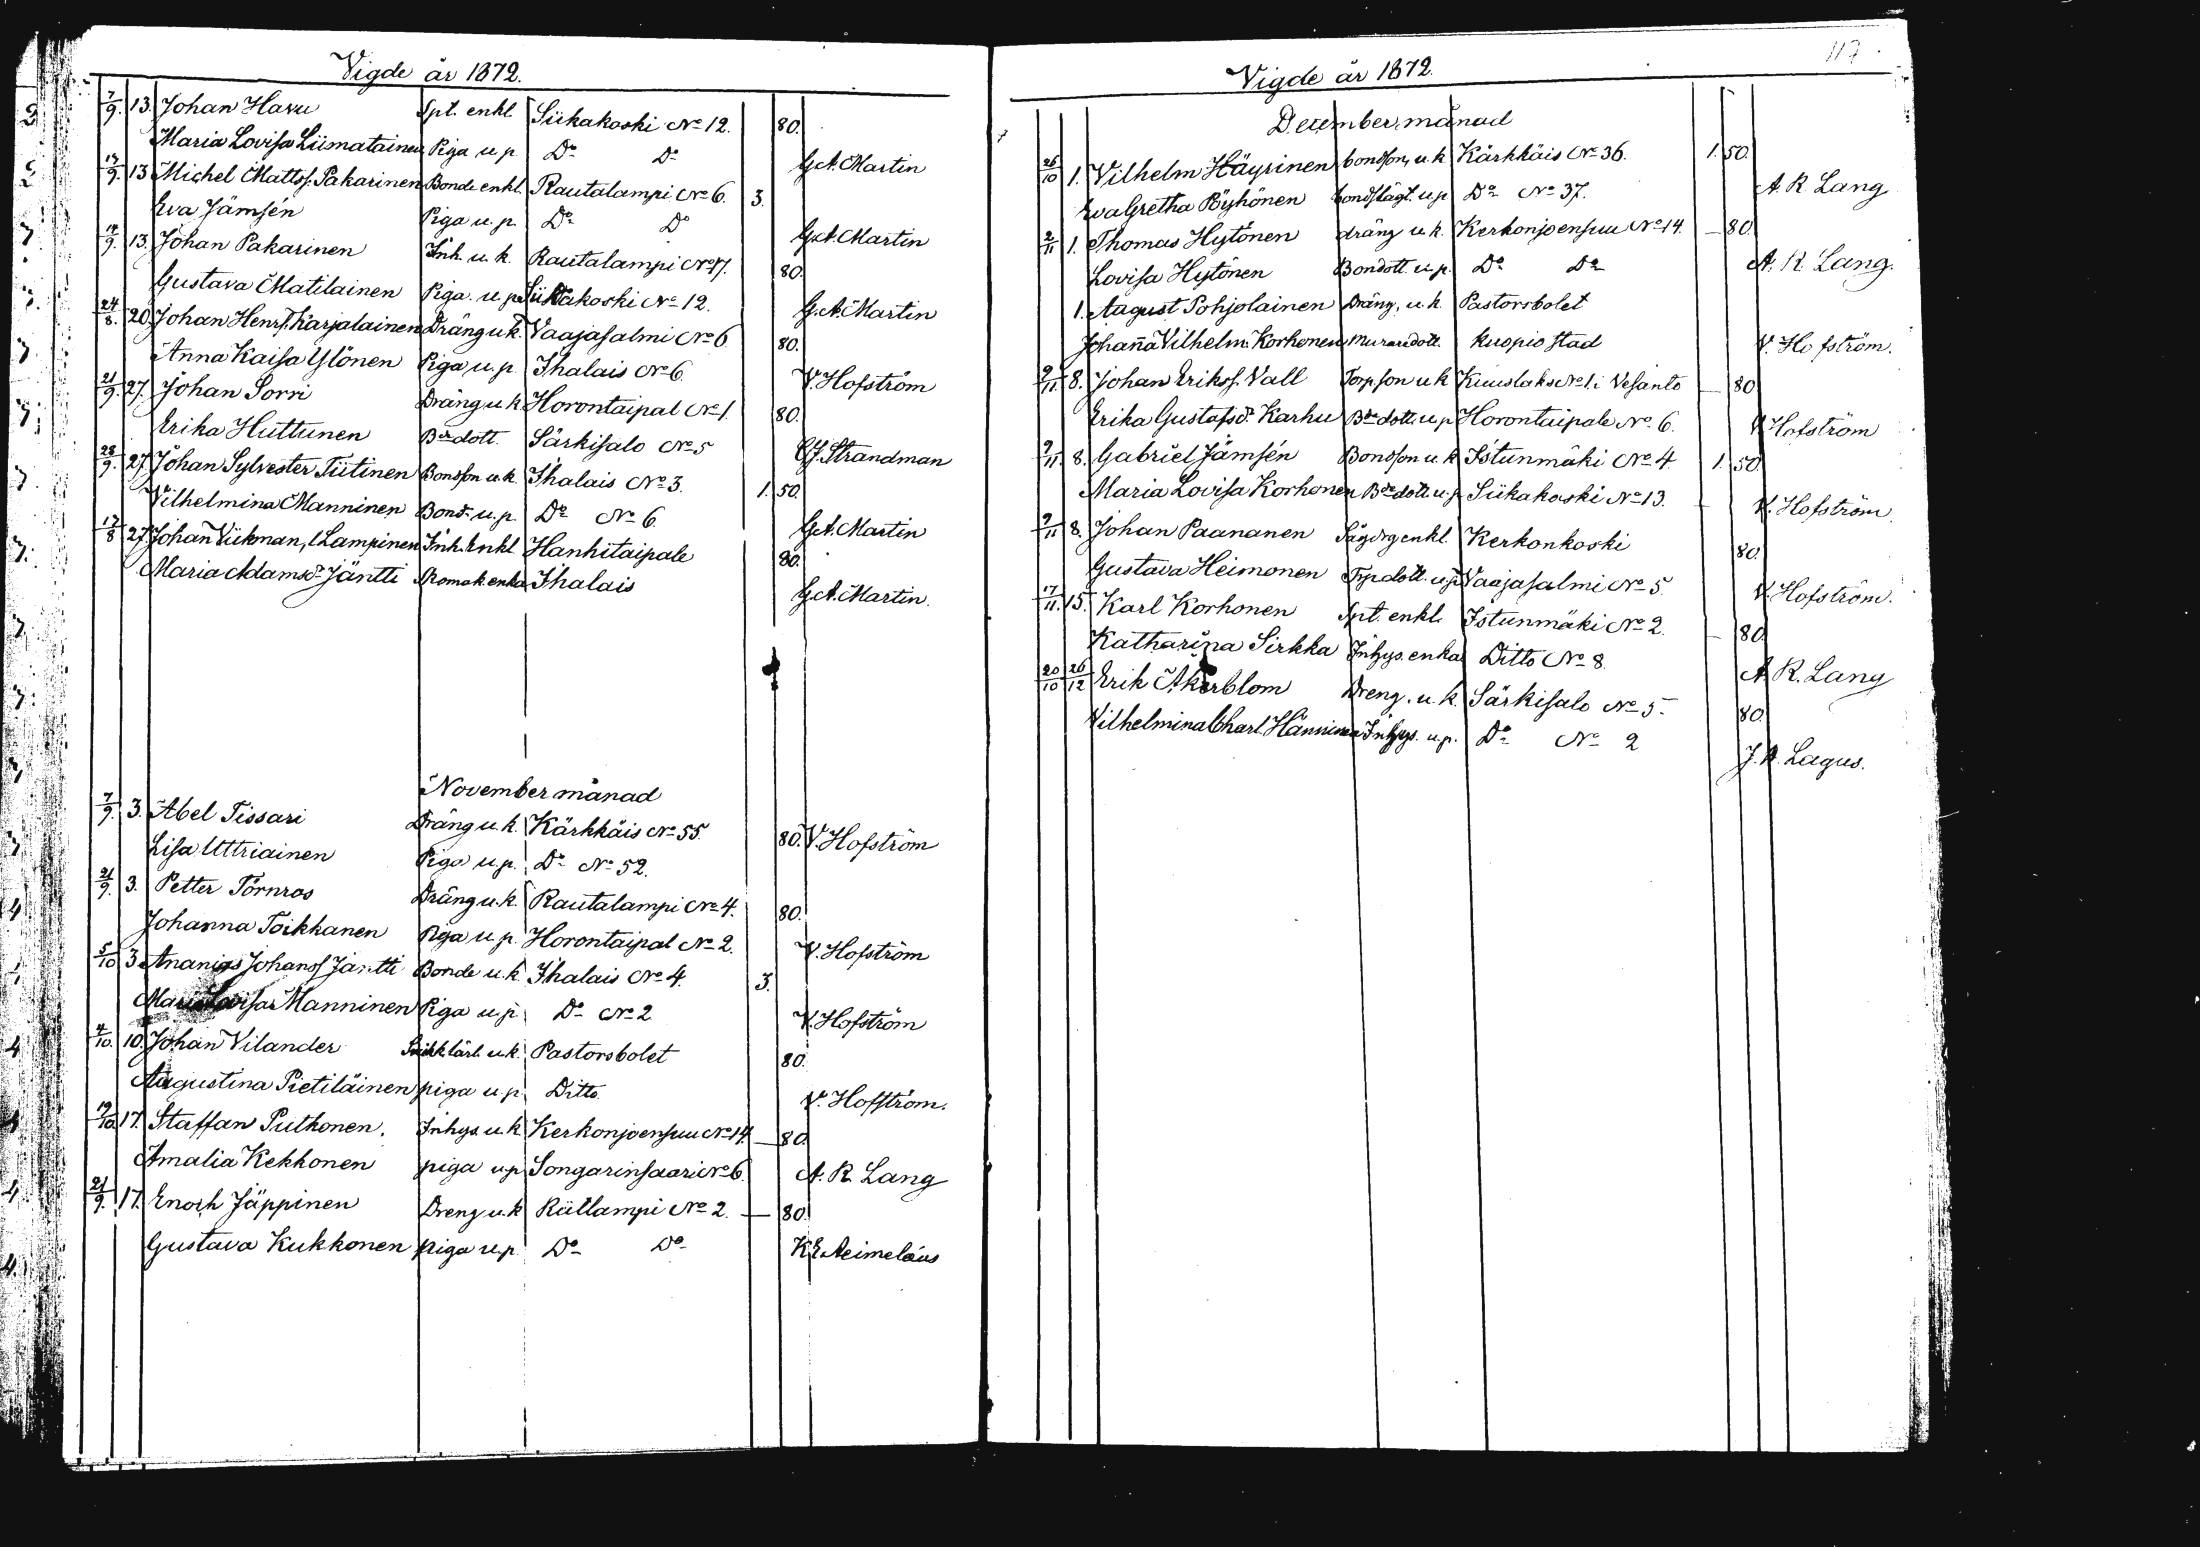 Vigde år 1872.
7/9. 13. Johan Havu Spt. enkl Siikakoski No 12. 80.
Maria Lovisa Liimatainen Piga u. p Do Do G. A. Martin
13 Michel Mattss. Pakarinen Bonde enkl. Rautalampi No 6. 3.
Eva Jämsén Piga u. p. Do Do G. A. Martin
14/9. 13. Johan Pakarinen Inh. u. k. Rautalampi No 17. 80.
Gustava Matilainen Piga. u. p. Siikakoski No 12. G. A. Martin
24/8. 20. Johan Henrs. Karjalainen Dräng u. k. Vaajasalmi No 6 80.
Anna Kaisa Ylönen Piga u. p Ihalais No 6. V. Hofström
21/9. 27. Johan Sorri Dräng u. k Horontaipal No 1. 80.
Erika Huttunen Bdedott. Särkisalo No 5 Strandman
28/9. 27. Johan Sylvester Tiitinen Bondson u. k. Ihalais No 3. 1. 50.
Vilhelmina Manninen Bond. u. p. Do No 6. G. A. Martin
17/8 27. Johan Viikman, l. Lampinen Inh. Enkl Hanhitaipale 80.
Maria Adamsdr Jäntti enka Ihalais G. A. Martin.
November månad
7/9. 3. Abel Tissari Dräng u. k. Kärkkäis No 55. 80. V. Hofström
Lisa Uttriainen Piga u. p. Do No 52.
21/9. 3. Petter Törnros Dräng u. k. Rautalampi No 4. 80.
Johanna Toikkanen Piga u. p. Horontaipal No 2. V. Hofström
5/10 3. Ananias Johans. Jäntti Bonde u. k. Ihalais No 4. 3.
Maria Lovisa Manninen Piga u. p. Do No 2 V. Hofström
4/10. 10. Johan Vilander u. k. Pastorsbolet 80.
Augustina Pietiläinen piga u. p. Ditto. V. Hofström.
19/10 17. Staffan Putkonen. Inhys. u. k. Kerkonjoensuu No 14. — 80.
Amalia Kekkonen piga u. p. Songarinsaari No 6. A. R. Lang
21/9. 17. Enoch Jäppinen Dreng u. k Rütlampi No 2. — 80.
Gustava Kukkonen piga u. p. Do Do K. E. Aeimeläus
117.
Vigde år 1872.
December månad
26/10 1. Vilhelm Häyrinen bondson, u. k Kärkkäis No 36. 1. 50.
Eva Gretha Pöyhönen bondslägt. u. p Do No 37. A. R. Lang
2/11 1. Thomas Hytönen dräng u. k. Kerkonjoensuu No 14. — 80
Lovisa Hytönen Bondott. u. p. Do Do A. R. Lang.
1. August Pohjolainen Dräng, u. k. Pastorsbolet
Johanna Vilhelm. Korhonen muraredott. Kuopio stad V. Hofström.
9/11. 8. Johan Erikss. Vall Torp. son u. k Kuuslaks No 1. i Vesanto — 80
Erika Gustafsdr Karhu Bdedott. u. p Horontaipale No 6. V. Hofström
9/11. 8. Gabriel Jämsén Bondson u. k. Istunmäki No 4. 1. 50.
Maria Lovisa Korhonen Bdedott. u. p. Siikakoski No 13. V. Hofström
9/11 8. Johan Paananen enkl. Kerkonkoski 80.
Gustava Heimonen Trpdott. u. p. Vaajasalmi No 5. V. Hofström.
17/11. 15. Karl Korhonen Spt. enkl. Istunmäki No 2. — 80.
Katharina Sirkka Inhys. enka Ditto No 8. A. R. Lang
20/10 26/12 Erik Åkerblom Dreng. u. k. Särkisalo No 5. 80.
Vilhelmina Charl. Hänninen Inhys. u. p. Do No 2 J. A. Lagus.